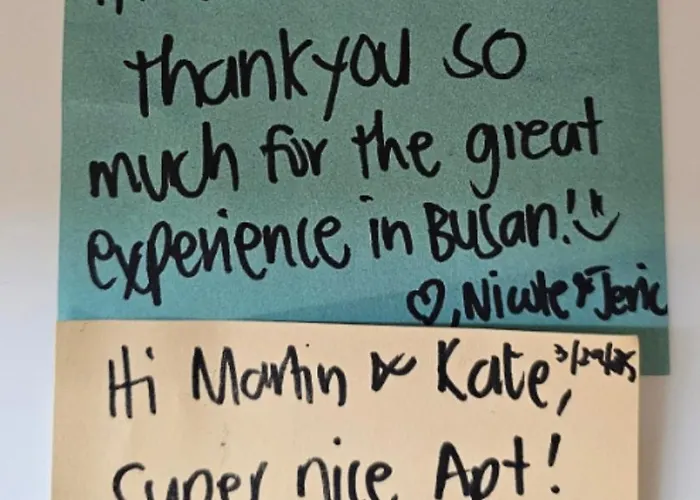 thankyou so
much for the great
experience in Busan!
♡, Nicole & Jeric
Hi Martin & Kate,
super nice Apt!